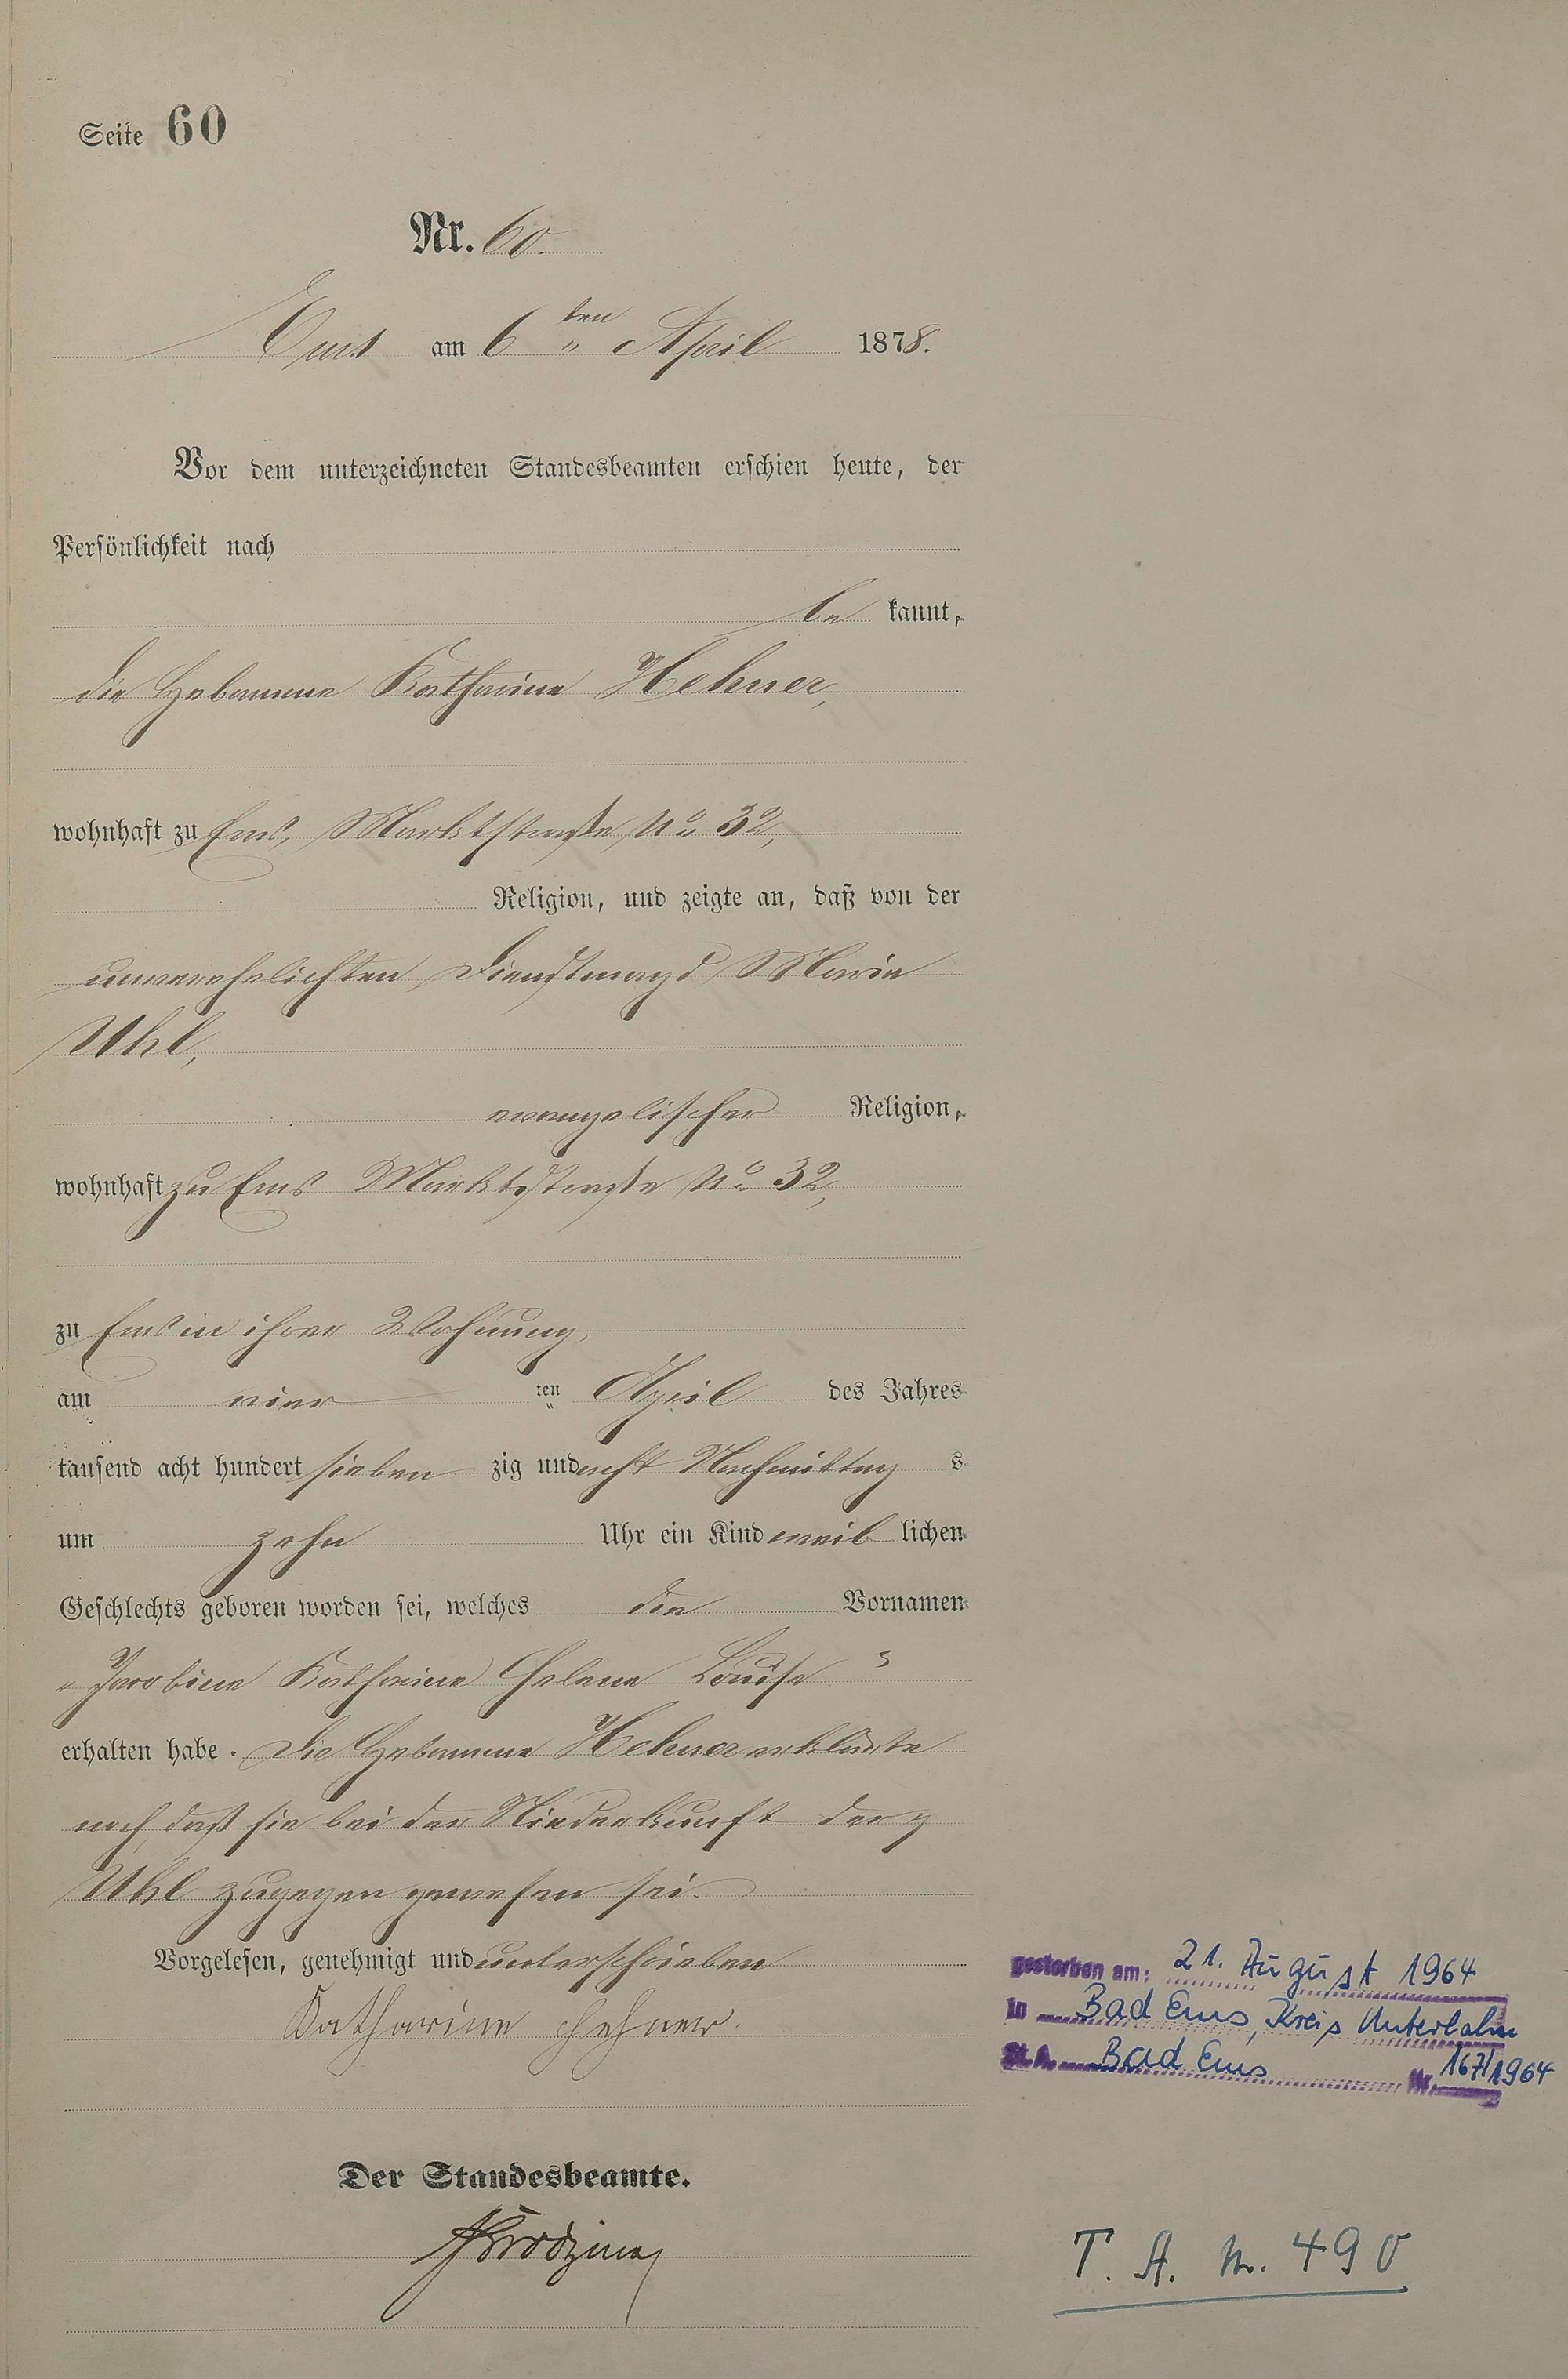 Seite 60
Nr. 60.
Ems am 6ten April 1878.
Vor dem unterzeichneten Standesbeamten erschien heute, der
Persönlichkeit nach
be kannt,
die Hebamme Katharina Hehner,
wohnhaft zu Ems, Marktstraße No 32,
Religion, und zeigte an, daß von der
unverehelichten Dienstmagd Maria
Uhl,
evangelischer Religion,
wohnhaft zu Ems Marktstraße No 32,
zu Ems in ihrer Wohnung,
am vier ten April des Jahres
tausend acht hundert sieben zig und acht Nachmittag s
um zehn Uhr ein Kind weib lichen
Geschlechts geboren worden sei, welches den Vornamen
"Jacobina Katharina Helena Louise"
erhalten habe. Die Hebamme Hehner erklärte
noch, daß sie bei der Niederkunft der
Uhl zugegen gewesen sei.
Vorgelesen, genehmigt und unterschrieben
Katharina Hehner.
Der Standesbeamte.
gestorben am: 21. August 1964
in Bad Ems, Kreis Unterlahn
St.A. Bad Ems Nr. 167/1964
T. A. Nr. 490